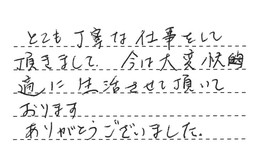 とても丁寧な仕事をして
頂きまして 今は大変快
適に生活させて頂いて
おります
ありがとうございました.